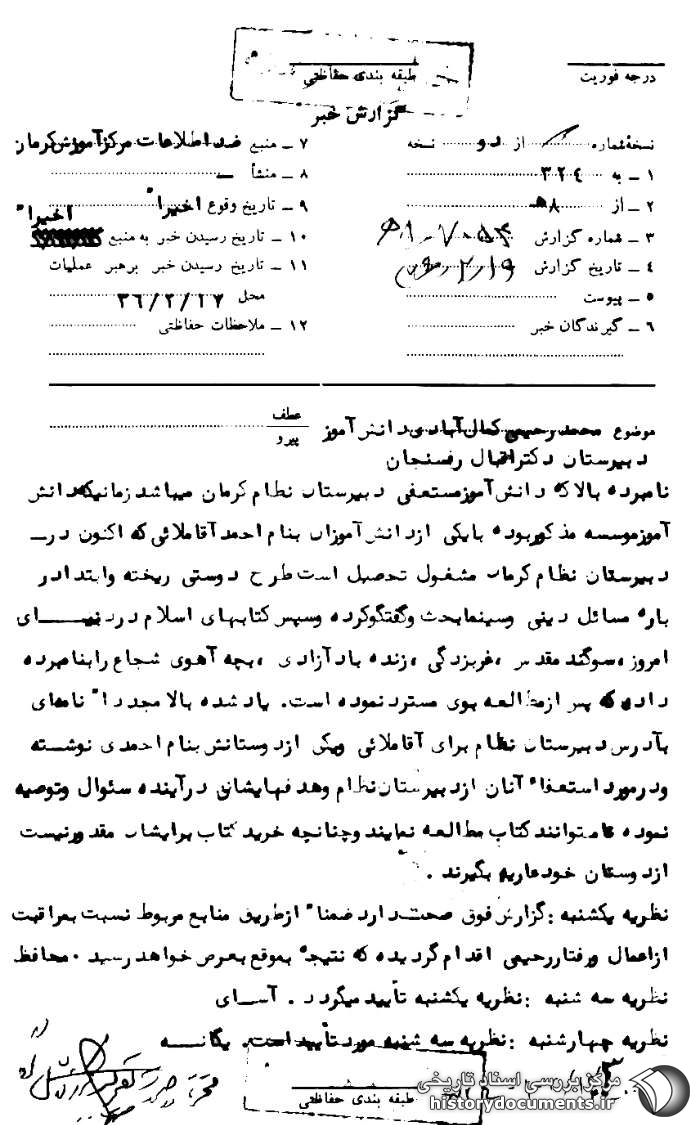 درجه فوریت
طبقه بندی حفاظتی
گزارش خبر
نسخهٔ شماره ........ از دو نسخه
۱ ـ به ۳۲٤
۲ ـ از ۸هـ
۳ ـ شماره گزارش
٤ ـ تاریخ گزارش
۵ ـ پیوست
۶ ـ گیرندگان خبر
۷ ـ منبع ضد اطلاعات مرکز آموزش کرمان
۸ ـ منشأ ـ
۹ ـ تاریخ وقوع اخیرا"
اخیرا"
۱۰ ـ تاریخ رسیدن خبر به منبع
۱۱ ـ تاریخ رسیدن خبر برهبر عملیات
محل ۳۶/۲/۱۷
۱۲ ـ ملاحظات حفاظتی
موضوع محمد رحیمی کمال آبادی دانش آموز
عطف
پیرو
دبیرستان دکتر اقبال رفسنجان
نامبرده بالا که دانش آموز مستعفی دبیرستان نظام کرمان میباشد زمانیکه دانش
آموز موسسه مذکور بوده با یکی از دانش آموزان بنام احمد آقاملائی که اکنون در ـ
دبیرستان نظام کرمان مشغول تحصیل است طرح دوستی ریخته و ابتدا در
باره مسائل دینی و سینما بحث و گفتگو کرده و سپس کتابهای اسلام در دنیـــای
امروز ، سوگند مقدس ، غربزدگی ، زنده باد آزادی ، بچه آهوی شجاع را بنامبرده
داده که پس از مطالعه بوی مسترد نموده است. یاد شده بالا مجددا" نامه‌ای
بآدرس دبیرستان نظام برای آقاملائی و یکی از دوستانش بنام احمدی نوشـته
و در مورد استعفاء آنان از دبیرستان نظام و هدفهایشان در آینده سئوال و توصیه
نموده تا میتوانند کتاب مطالعه نمایند و چنانچه خرید کتاب برایشان مقدور نیست
از دوستان خود عاریه بگیرند .
نظریه یکشنبه : گزارش فوق صحت دارد ضمنا" از طریق منابع مربوط نسبت بمراقبت
از اعمال و رفتار رحیمی اقدام گردیده که نتیجه بموقع بعرض خواهد رسید ۰ محافظ
نظریه سه شنبه : نظریه یکشنبه تأیید میگردد . آسـای
نظریه چهارشنبه : نظریه سه شنبه مورد تأیید است. یگانـــه
طبقه بندی حفاظتی
مرکز بررسی اسناد تاریخی
historydocuments.ir